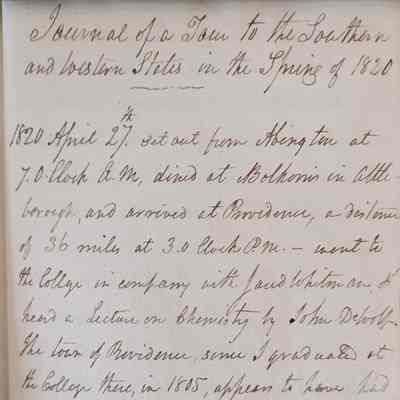 Journal of a Tour to the Southern
and Western States in the Spring of 1820
1820 April 27th. set out from Abington at
7. O.Clock A.M, dined at Bolkom's in Attle-
borough, and arrived at Providence, a distance
of 36 miles at 3.O.Clock P.M. — went to
the College in company with Jared Whitman, &
heard a Lecture on Chemistry by John DeWolf.
The town of Providence, since I graduated at
the College there, in 1805, appears to have had